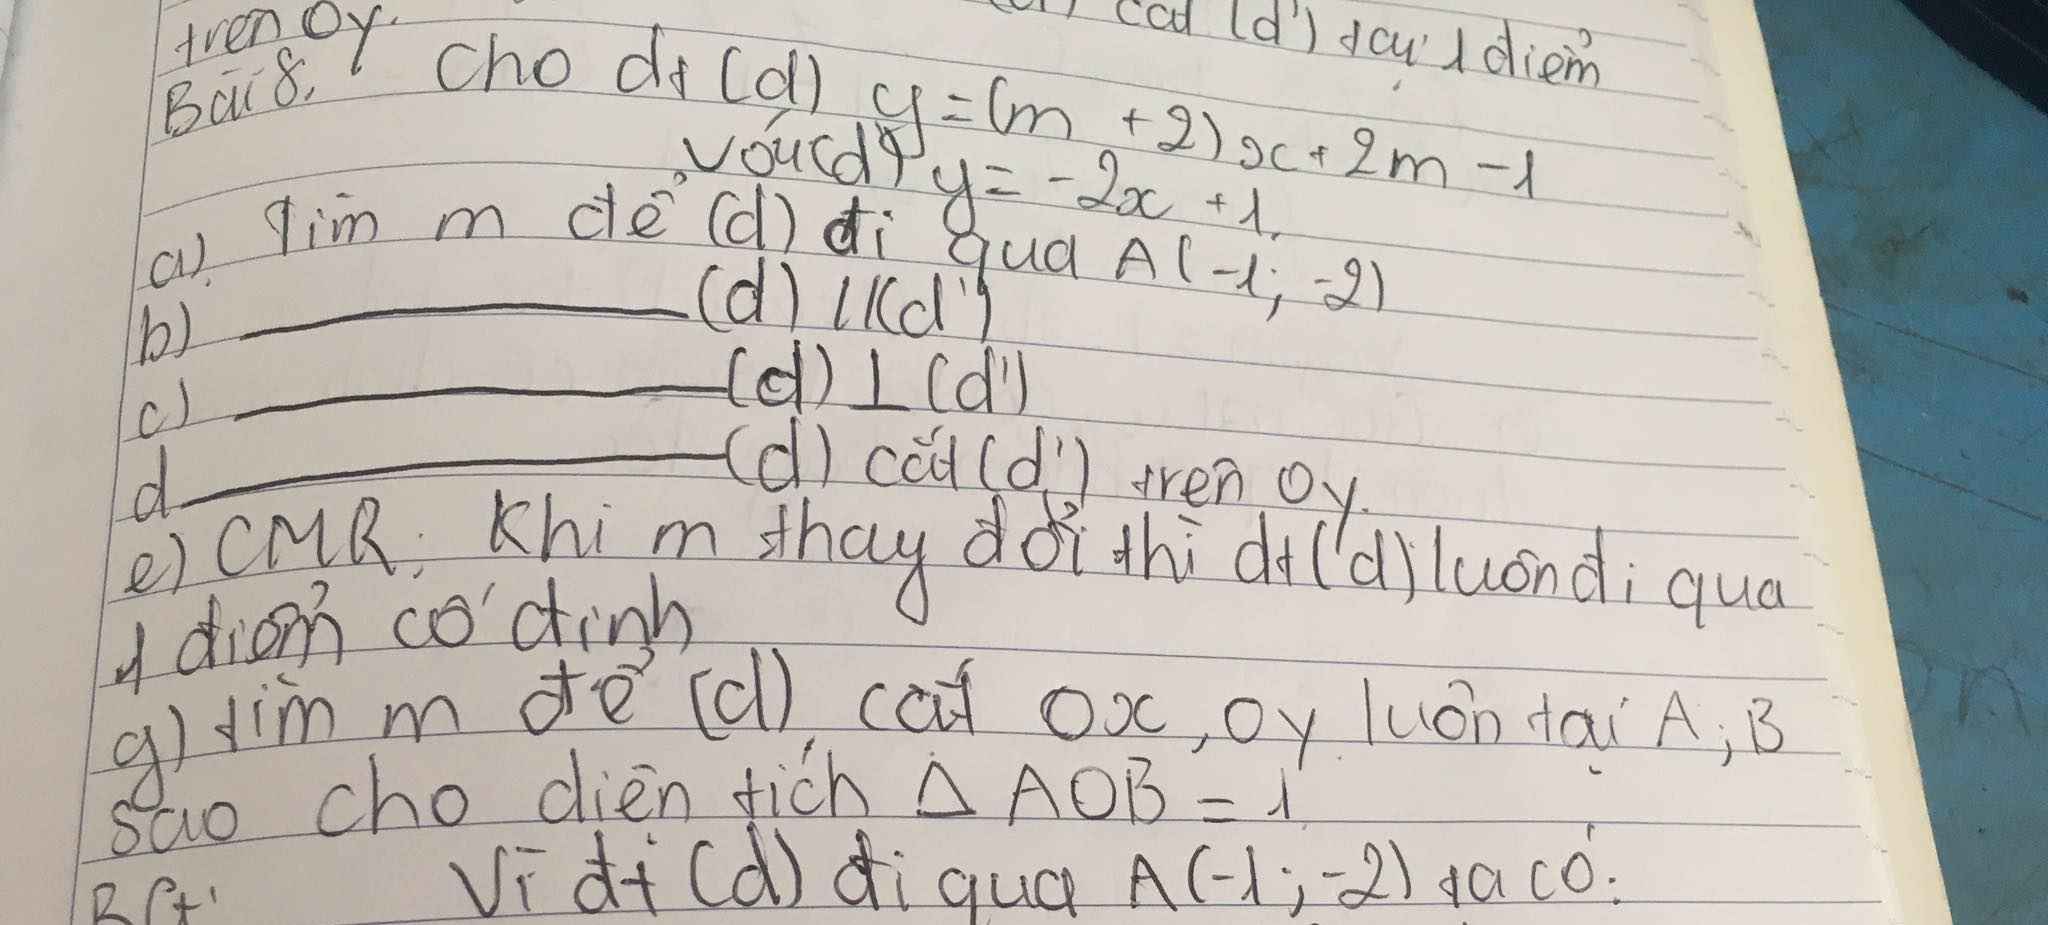 cắt (d') tại 1 điểm
trên Oy.
Bài 8. Cho dt (d) y = (m + 2)x + 2m - 1
với (d') y = -2x + 1.
a) Tìm m để (d) đi qua A(-1; -2)
b) ——— (d) // (d')
c) ——— (d) ⊥ (d')
d ——— (d) cắt (d') trên Oy.
e) CMR: Khi m thay đổi thì dt (d) luôn đi qua
1 điểm cố định
g) tìm m để (d) cắt Ox, Oy luôn tại A; B
sao cho diện tích Δ AOB = 1
Vì đt (d) đi qua A(-1; -2) ta có: